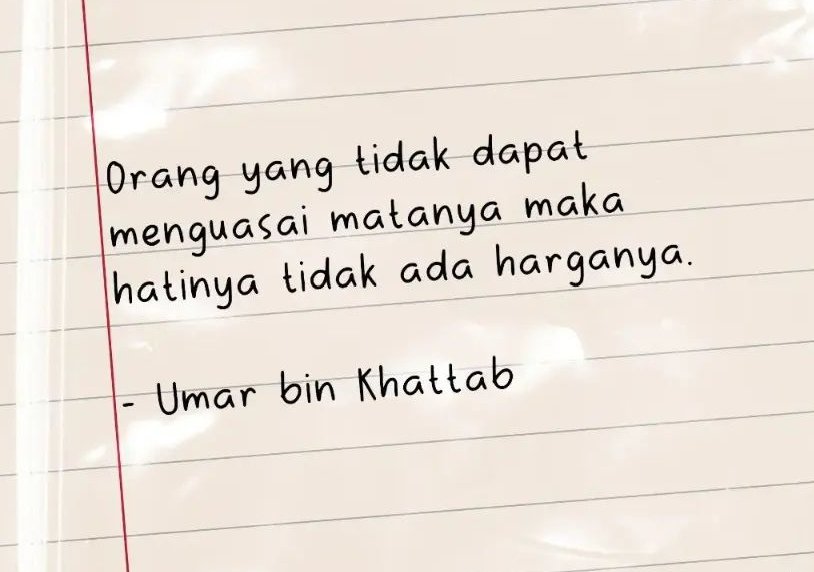 Orang yang tidak dapat
menguasai matanya maka
hatinya tidak ada harganya.
- Umar bin Khattab